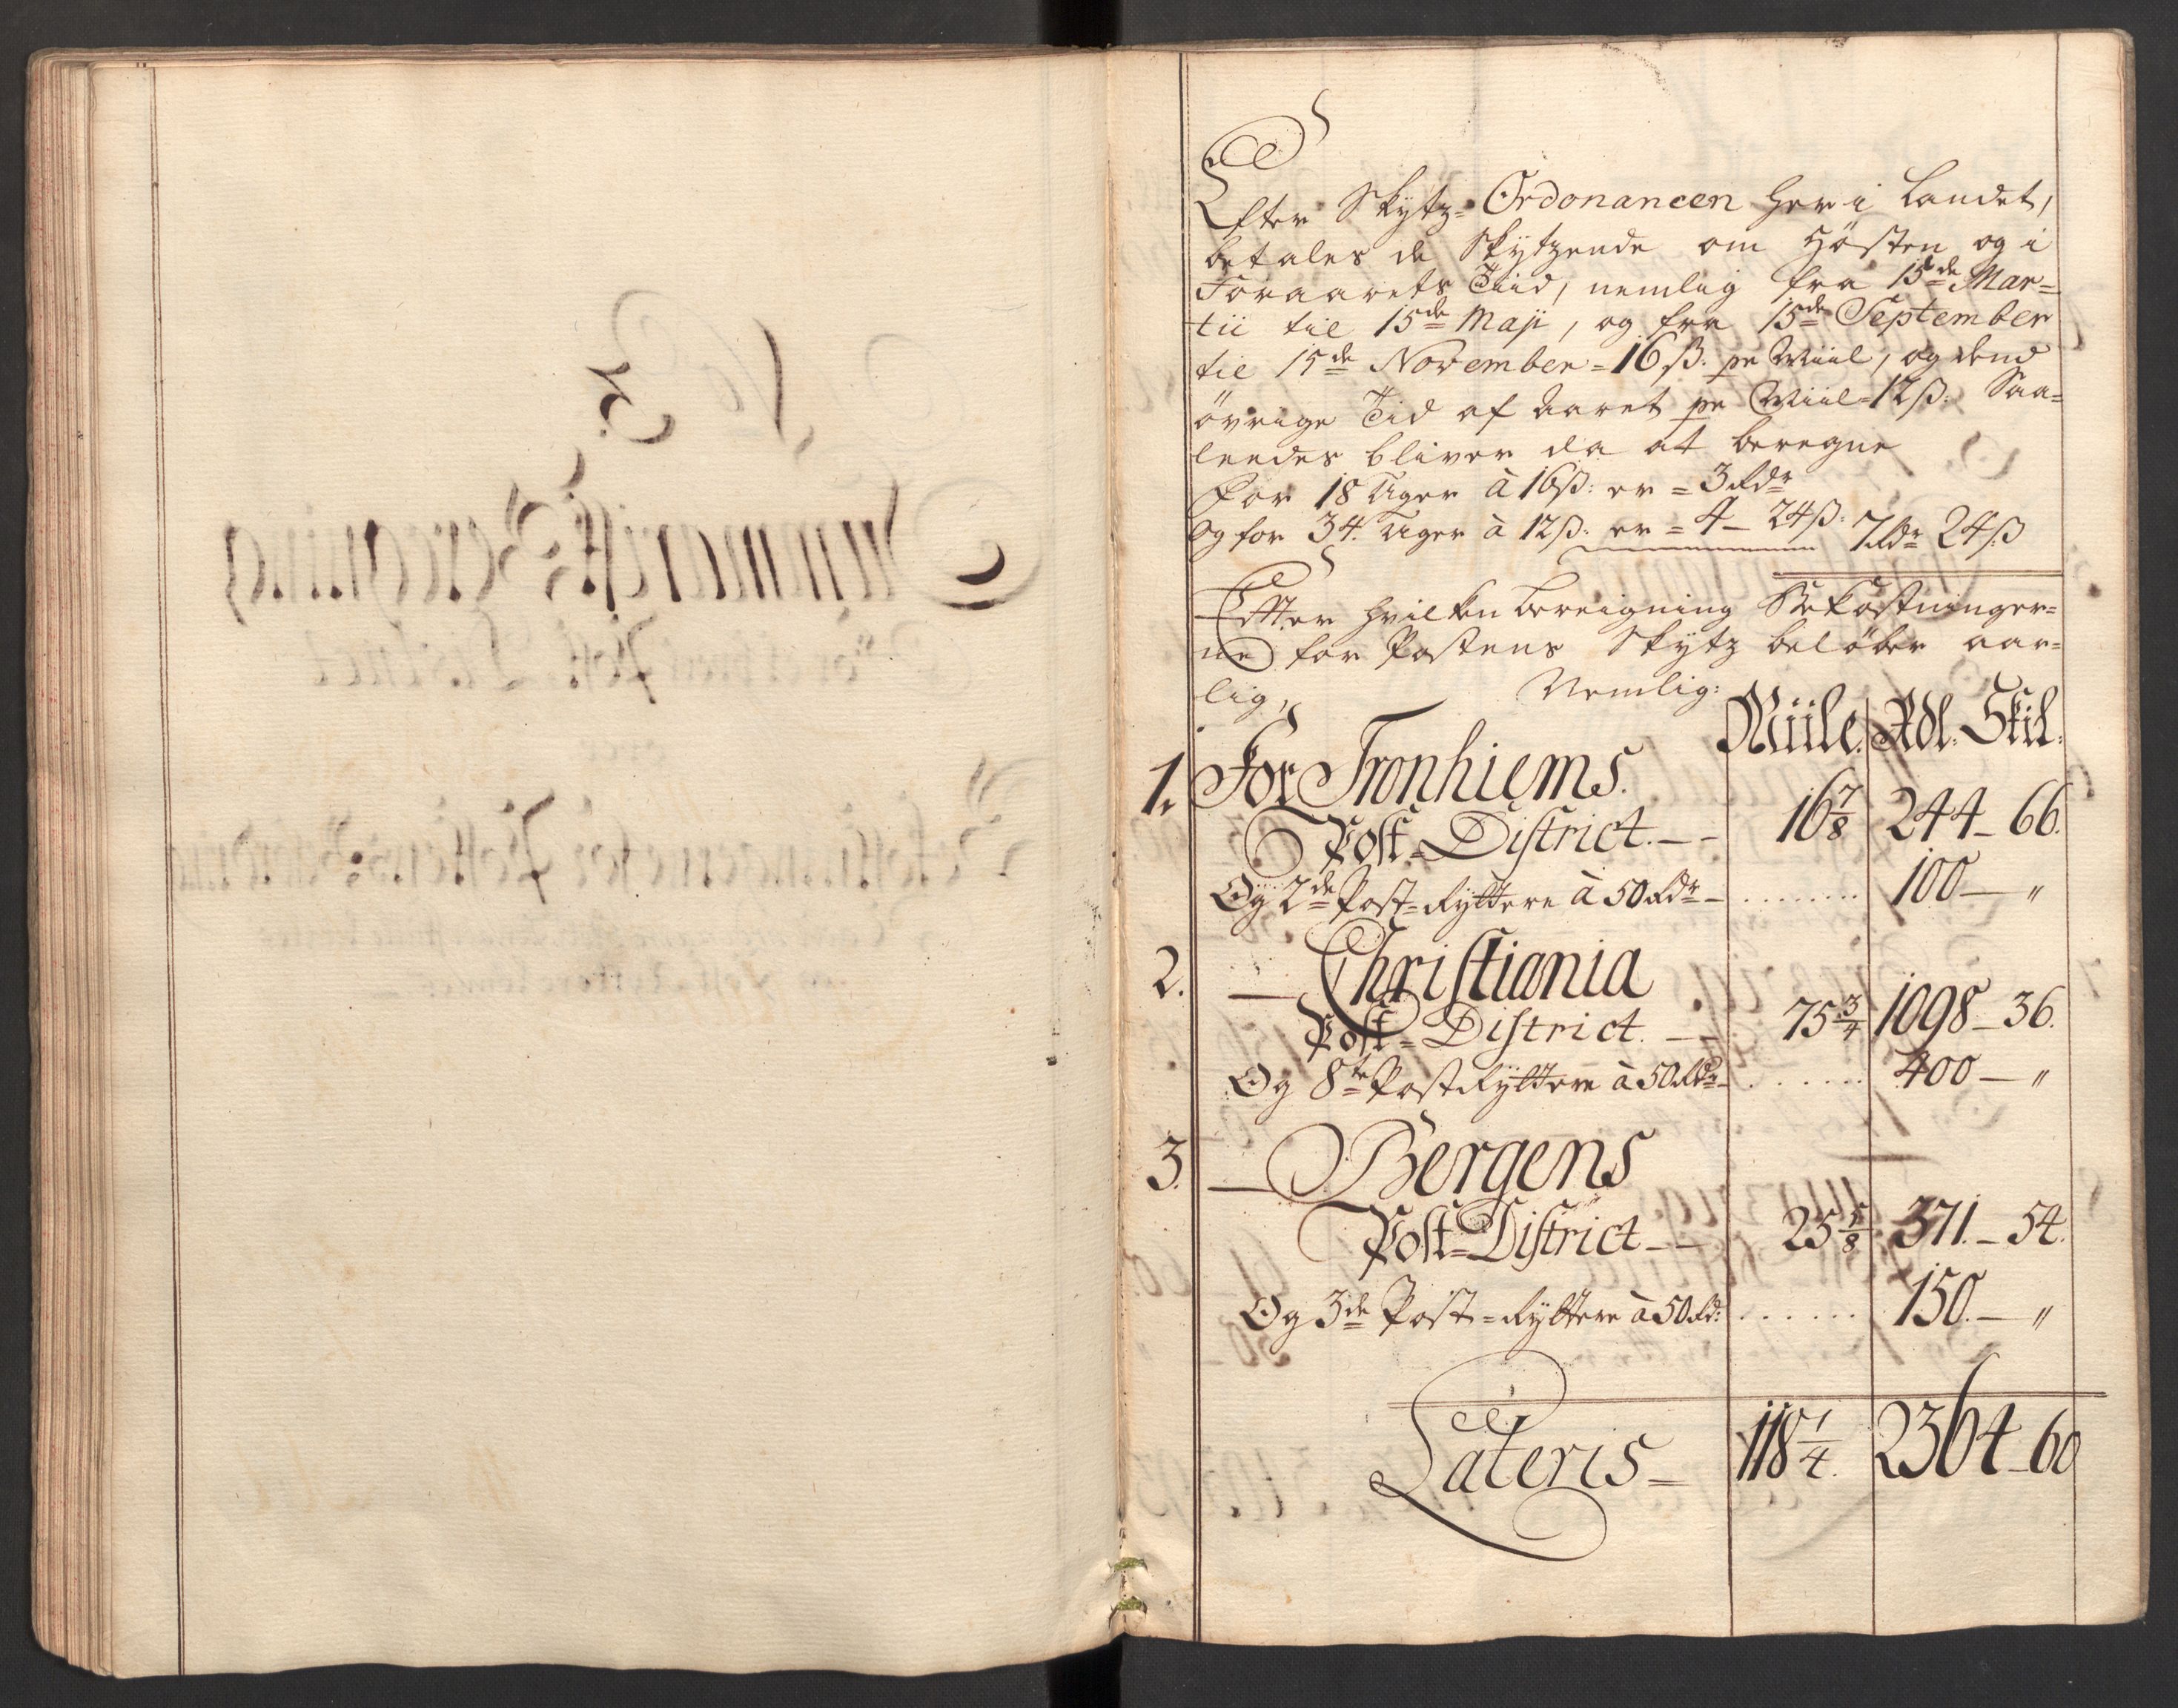 Efter Skytz-Ordonancen her i Landet,
betales de Skytzende om Hösten og i
Foraarets Tiid, nemlig fra 15de Mar=
tii til 15de Maji, og fra 15de September
til 15de November = 16 ß. pr Miil, og dend
övrige Tid af Aaret pr Miil = 12 ß. Saa=
leedes bliver da at beregne
For 18 Uger à 16 ß: er = 3 Rdr
Og for 34. Uger à 12 ß: er = 4 - 24 ß: 7 Rdr 24 ß
Efter hvilken Bereigning Bekostninger=
ne for Postens Skytz beløber aar=
lig, Nemlig:
Miile. Rdl. Skil.
1. For Tronhiems.
Post=District. -- 16 7/8 244 - 66.
Og 2de Post=Ryttere à 50 Rdr - ....... 100 - "
2. — Christiania
Post=District. -- 75 3/4 1098 - 36.
Og 8te Post Ryttere à 50 Rdr - ...... 400 - "
3. — Bergens
Post=District -- 25 5/8 371. - 54.
Og 3de Post=Ryttere à 50 Rd: ...... 150. - "
Lateris = 118 1/4. 2364 - 60